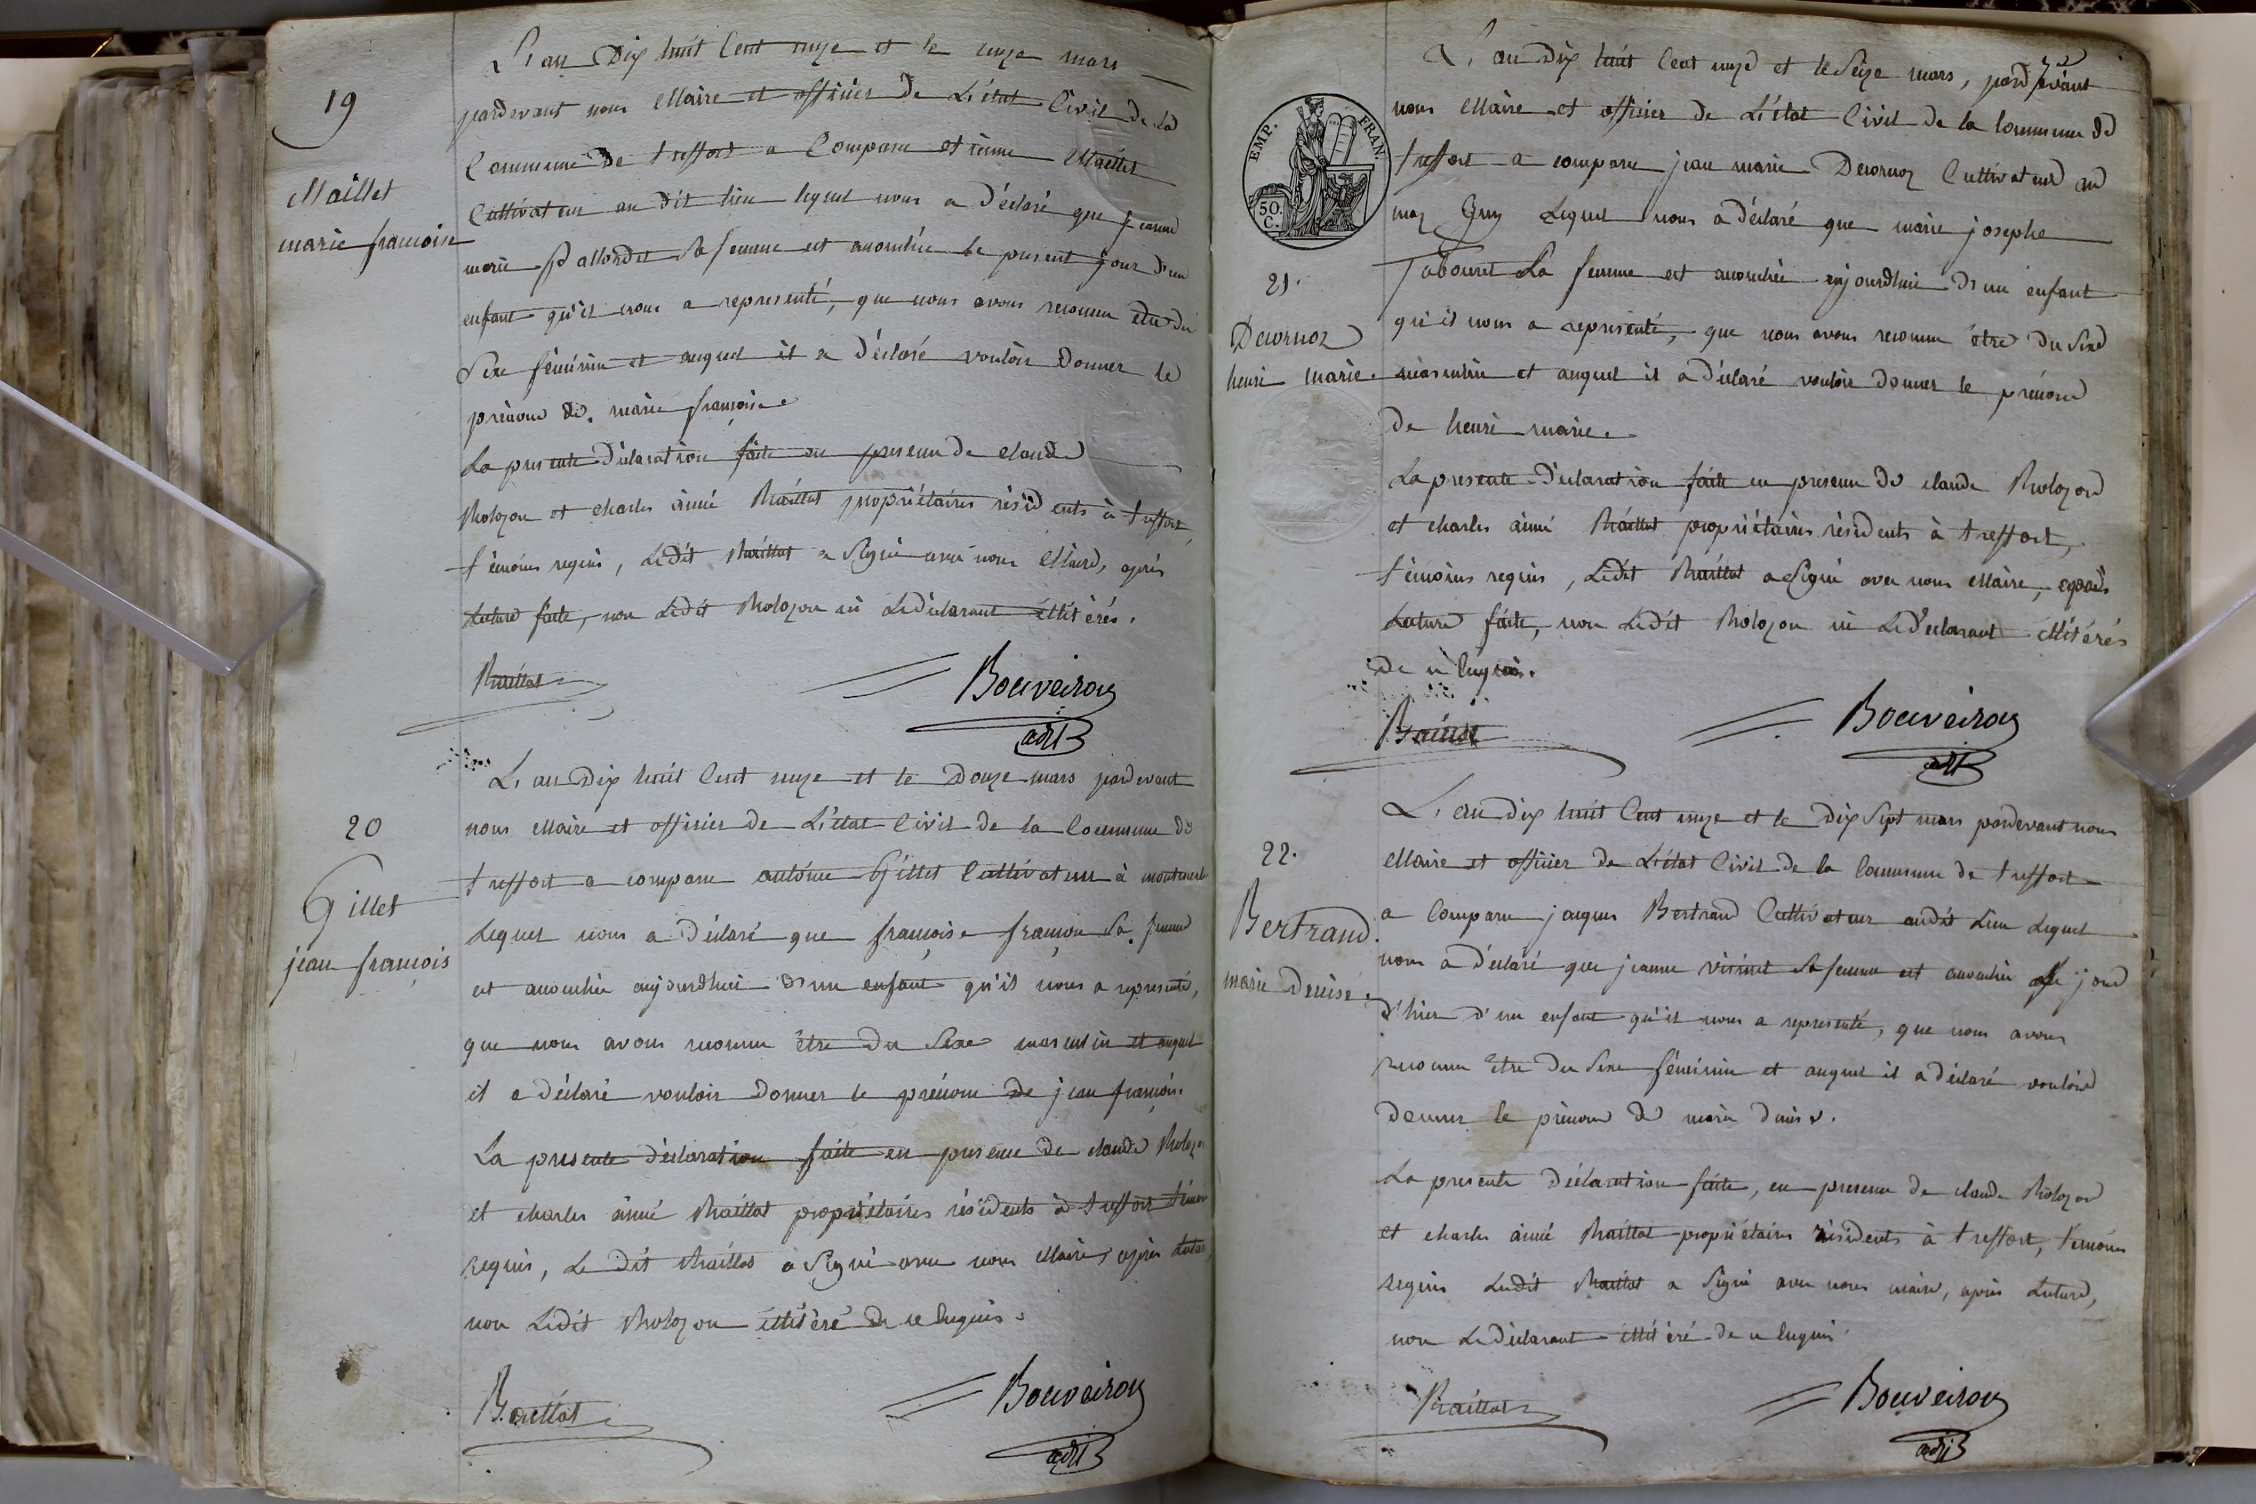 19
Maillet
marie francoise
L'an Dix huit Cent onze et le onze mars
pardevant nous Maire et officier de L'état Civil de la
Commune de treffort a Comparu etienne Maillet
Cultivateur au dit lieu lequel nous a déclaré que jeanne
marie sa femme est accouchée le present jour d'un
enfant qu'il nous a representé, que nous avons reconnu etre du
Sexe féminin et auquel il a déclaré vouloir Donner le
prénom de marie françoise
La presente déclaration faite en presence de claude
et charles aimé propriétaires résidents à treffort,
témoins requis, Ledit a Signé avec nous Maire, après
Lecture faite, non Ledit ni Le déclarant illitérés.
Bouveiron
adjt
20
Gillet
jean françois
L'an Dix huit Cent onze et le Douze mars pardevant
nous Maire et officier de L'état Civil de la Commune de
treffort a comparu antoine Gillet Cultivateur à
Lequel nous a déclaré que françoise françon Sa femme
est accouchée aujourdhui d'un enfant qu'il nous a representé,
que nous avons reconnu être du Sexe masculin et auquel
il a déclaré vouloir Donner le prénom de jean françois.
La presente déclaration faite en presence de claude
et charles aimé propriétaires résidents à treffort témoins
requis, Le dit a Signé avec nous Maire, après Lecture,
non Ledit illitéré de ce Enquis.
Bouveiron
adjt
EMP. FRAN.
50.
C.
21.
Decornoz
henri marie.
L'an Dix huit Cent onze et le Seize mars, pardevant
nous Maire et officier de L'état Civil de la Commune de
treffort a comparu jean marie Decornoz Cultivateur au
maz Guy Lequel nous a déclaré que marie josephe
Tabouret Sa femme est accouchée aujourdhui d'un enfant
qu'il nous a representé, que nous avons reconnu être du Sexe
masculin et auquel il a déclaré vouloir donner le prénom
de henri marie.
La presente Déclaration faite en presence de claude
et charles aimé propriétaires résidents à treffort,
témoins requis, Ledit a Signé avec nous Maire, après
Lecture faite, non Ledit ni Le déclarant illitérés
de ce Enquis.
Bouveiron
adjt
22.
Bertrand
marie Denise
L'an dix huit Cent onze et le Dix Sept mars pardevant nous
Maire et officier de L'état Civil de la Commune de treffort
a Comparu jaques Bertrand Cultivateur audit Lieu Lequel
nous a déclaré que jeanne Sa femme est accouchée le jour
d'hier d'un enfant qu'il nous a representé, que nous avons
reconnu être du Sexe féminin et auquel il a déclaré vouloir
Donner le prénom de marie denise.
La presente Déclaration faite, en presence de claude
et charles aimé propriétaires résidents à treffort, témoins
requis Ledit a Signé avec nous maire, après Lecture,
non Le déclarant illitéré de ce Enquis
Bouveiron
adjt